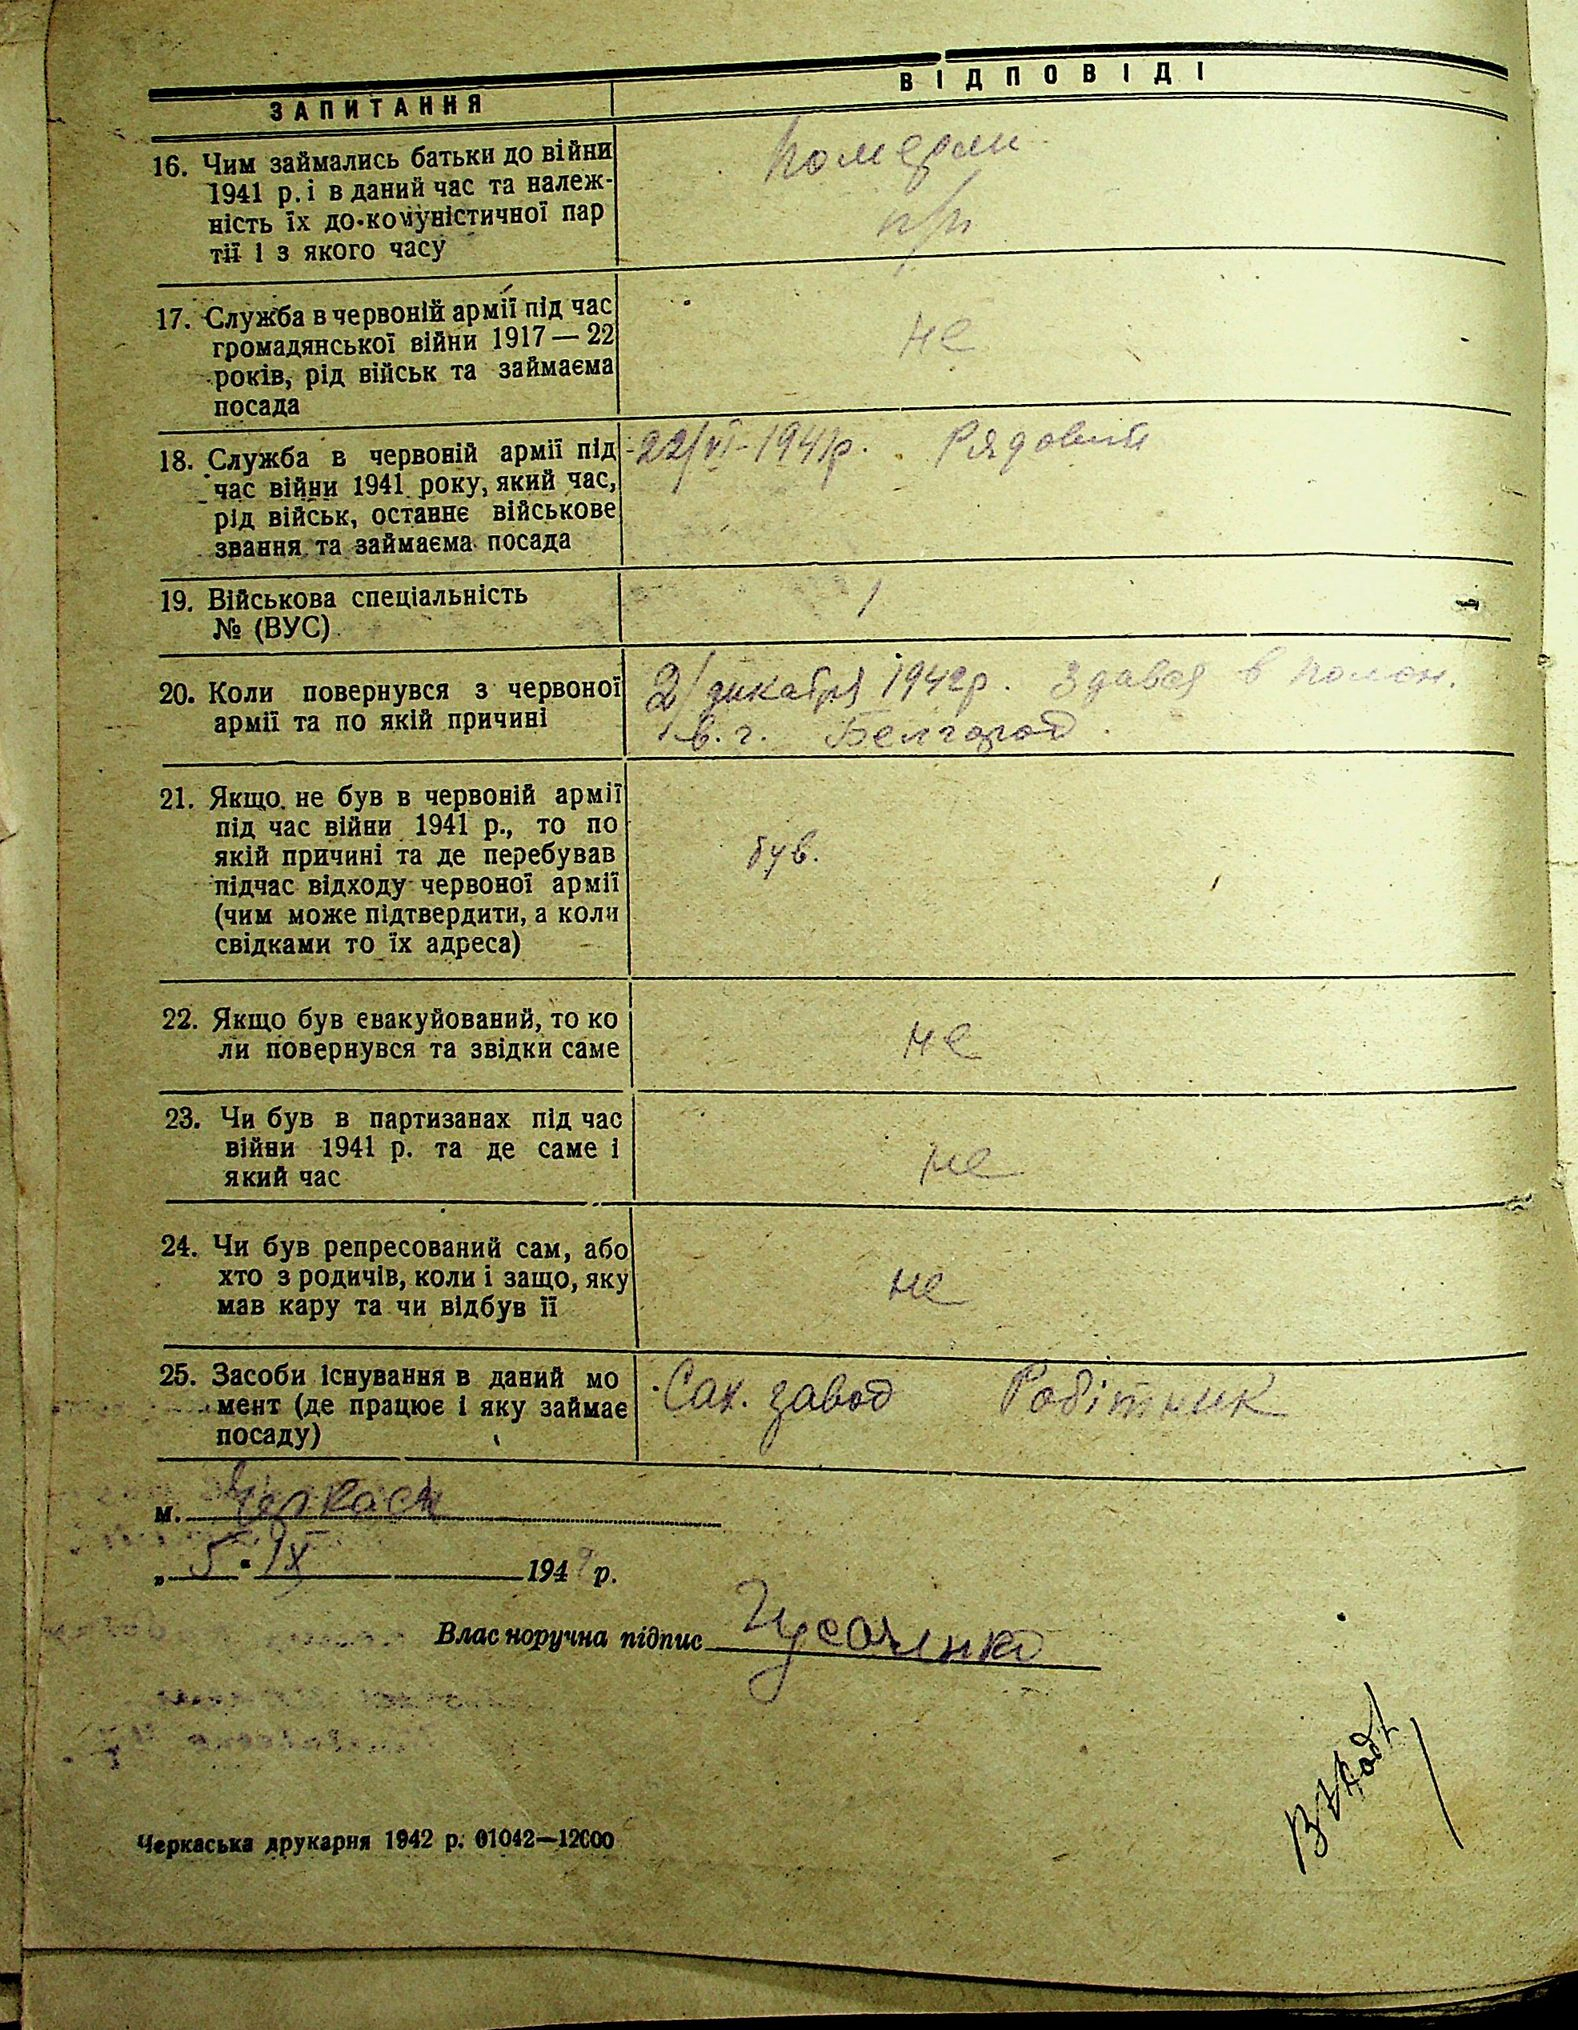 ЗАПИТАННЯ
ВІДПОВІДІ
16. Чим займались батьки до війни
1941 р. і в даний час та належ-
ність їх до комуністичної пар
тії і з якого часу
Померли
п/п
17. Служба в червоній армії під час
громадянської війни 1917 — 22
років, рід військ та займаєма
посада
не
18. Служба в червоній армії під
час війни 1941 року, який час,
рід військ, останнє військове
звання та займаєма посада
22/VI-1941р. Рядовий
19. Військова спеціальність
№ (ВУС)
20. Коли повернувся з червоної
армії та по якій причині
2/декабря 1942р. Здався в полон.
в. г. Белгород.
21. Якщо не був в червоній армії
під час війни 1941 р., то по
якій причині та де перебував
підчас відходу червоної армії
(чим може підтвердити, а коли
свідками то їх адреса)
був.
22. Якщо був евакуйований, то ко
ли повернувся та звідки саме
не
23. Чи був в партизанах під час
війни 1941 р. та де саме і
який час
не
24. Чи був репресований сам, або
хто з родичів, коли і защо, яку
мав кару та чи відбув її
не
25. Засоби існування в даний мо
мент (де працює і яку займає
посаду)
Сах. завод Робітник
м. Черкаси
„5“ IX 194 р.
Власноручна підпис
Черкаська друкарня 1942 р. 01042—12000